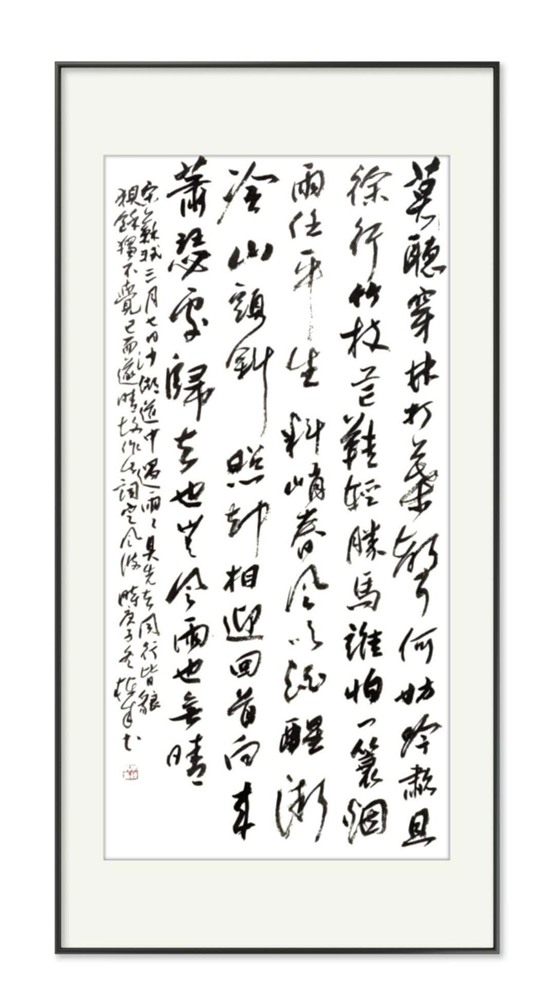 莫聽穿林打葉聲何妨吟嘯且
徐行竹杖芒鞋輕勝馬誰怕一蓑烟
雨任平生料峭春風吹酒醒微
冷山頭斜照却相迎回首向來
蕭瑟處歸去也無風雨也無晴
宋蘇軾三月七日沙湖道中遇雨雨具先去同行皆狼
狽余獨不覺已而遂晴故作此詞定風波 時庚子冬